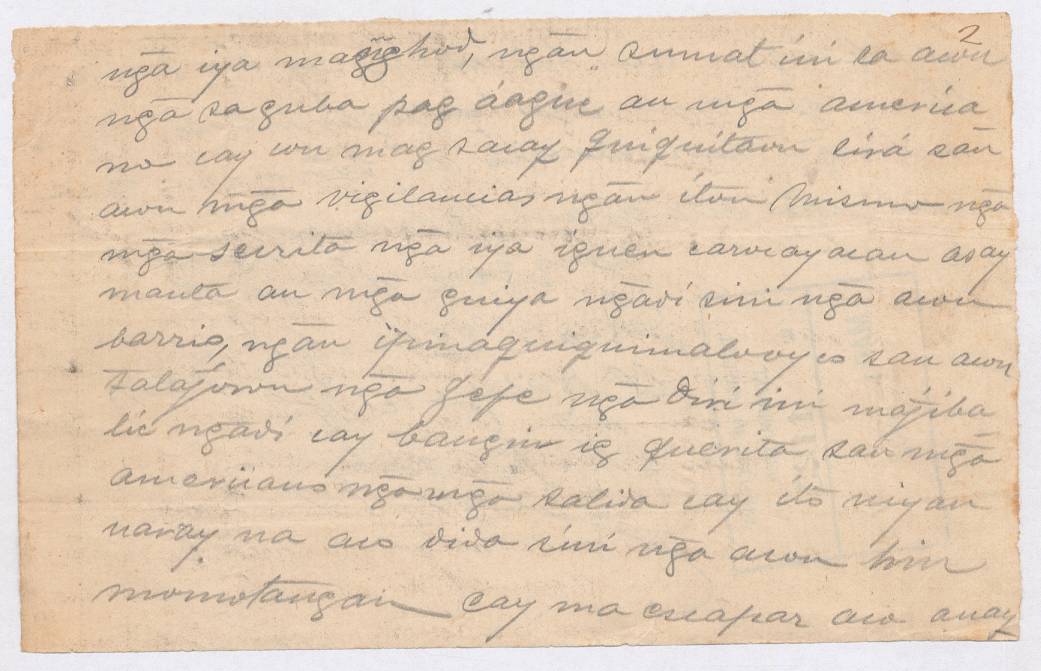 2
ngã iya magighod, ngãn sumat ini sa acon
ngã saguba pag áagui an mgã america
no cay con mag sacay quiquitaon sirá sãn
acon mgã vigilancias ngãn íton mismo ngã
mgã secrita ngã iya iguen carocayacan asay
manta an mgã guiya ngadí sini ngã acon
barrio, ngãn san acon
ngã Jefe ngã diri ini májiba
lic ngadí cay bangin ig querita san mgã
americanos ngã mgã salida cay íto niyan
uaray na aco dida sini ngã acon hin
momotangan cay ma escapar aco anay